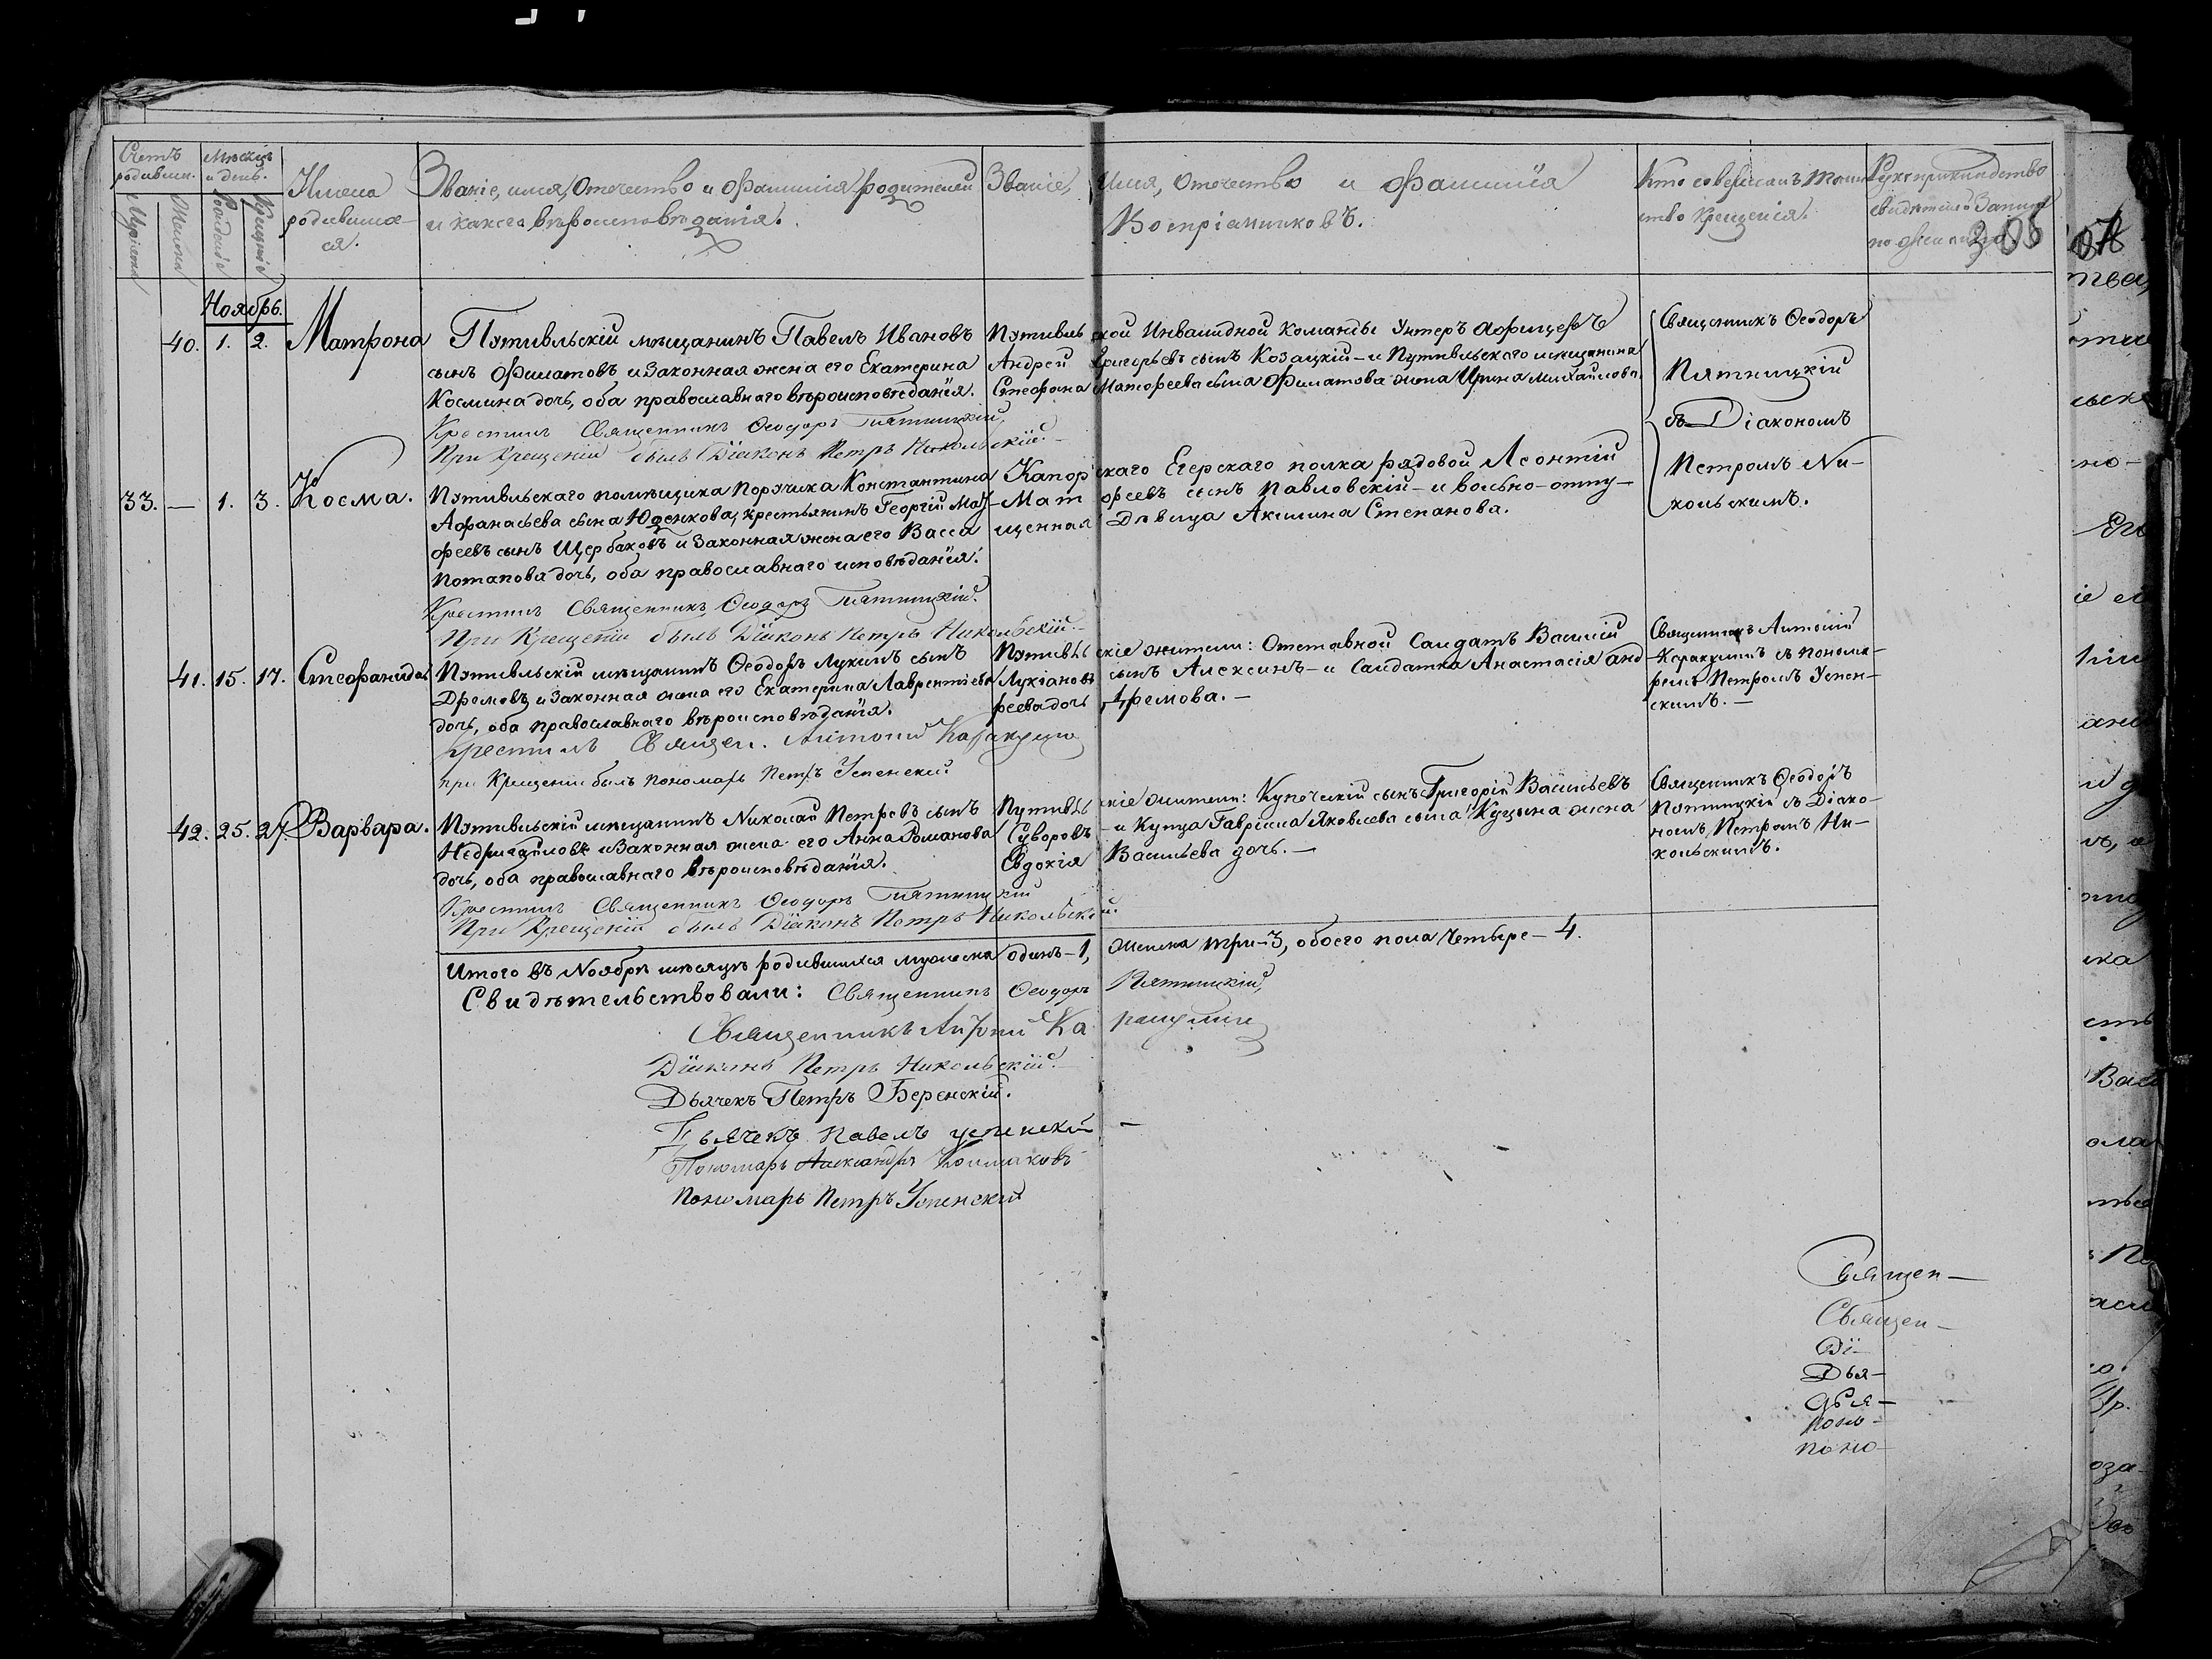 Счетъ родивших. Мѣсяцъ и день. Имена родивша- Званіе, имя, Отечество и Фамилія родителей Званіе, имя, Отечество и Фамилія Кто совершалъ Таин- Рукоприкладство
Мужеска Женска Рожденія Крещенія ся. и какого вѣроисповѣданія. Воспріемниковъ. ство Крещенія. свидѣтелей Записи по желанію. 206
Ноябрь.
40. 1. 2. Матрона
Пѫтивльскій мѣщанинъ Павелъ Ивановъ
сынъ Филатовъ и Законная жена его Екатерина
Космина дочь, оба православнаго вѣроисповѣданія.
Крестилъ Священникъ Ѳеодоръ Пятницкій,
При Крещеніи былъ Діаконъ Петръ Никольскій.
Пѫтивльской Инвалидной Команды Унтеръ Афицеръ
Андрей Григорьевъ сынъ Козацкій - и Путивльскаго мѣщанина
Стефана Матѳеева сына Филатова жена Ирина Михайлова.
Священникъ Ѳеодоръ
Пятницкій
съ Діакономъ
Петромъ Ни-
кольскимъ.
33. — 1. 3. Косма.
Пѫтивльскаго помѣщика Порѫчика Константина
Афанасьева сына Юденкова, крестьянинъ Георгій Мат-
феевъ сынъ Щербаковъ и Законная жена его Васса
Потапова дочь, оба православнаго исповѣданія.
Крестилъ Священникъ Ѳеодоръ Пятницкій.
При Крещеніи былъ Діаконъ Петръ Никольскій.
Капорскаго Егерскаго полка рядовой Леонтій
Матфеевъ сынъ Павловскій - и вольно-отпу-
щенная Дѣвица Акилина Степанова.
41. 15. 17. Стефанида
Пѫтивльскій мѣщанинъ Ѳеодоръ Лукинъ сынъ
Дремовъ и Законная жена его Екатерина Лаврентіева
дочь, оба православнаго вѣроисповѣданія.
Крестилъ Священ. Антоній
при Крещеніи былъ Пономарь Петръ Успенскій
Пѫтивльскіе жители: Отставной Салдатъ Василій
Лукіановъ сынъ Алексинъ - и Салдатка Анастасія Анд-
реева дочь Дремова. —
Священникъ Антоній
съ понома-
ремъ Петромъ Успен-
скимъ. —
42. 25. 27. Варвара.
Пѫтивльскій мѣщанинъ Николай Петровъ сынъ
и Законная жена его Анна Романова
дочь, оба православнаго вѣроисповѣданія.
Крестилъ Священникъ Ѳеодоръ Пятницкій
При Крещеніи былъ Діаконъ Петръ Никольскій.
Путивльскіе жители: Купеческій сынъ Григорій Васильевъ
Суворовъ - и Купца Гавріила Яковлева сына Куцына жена
Евдокія Васильева дочь. —
Священникъ Ѳеодоръ
Пятницкій съ Діако-
номъ Петромъ Ни-
кольскимъ.
Итого въ Ноябрѣ мѣсяцѣ родившихся мужеска одинъ - 1, женска три - 3, обоего пола Четыре - 4.
Свидѣтельствовали: Священникъ Ѳеодоръ Пятницкій,
Священникъ Антоній
Діаконъ Петръ Никольскій.
Дьячекъ Петръ Беренскій.
Дьячекъ Павелъ Успенскій —
Пономарь Александръ
Пономарь Петръ Успенскій
Священ —
Священ —
Ді —
Дья —
дья —
поно —
поно —